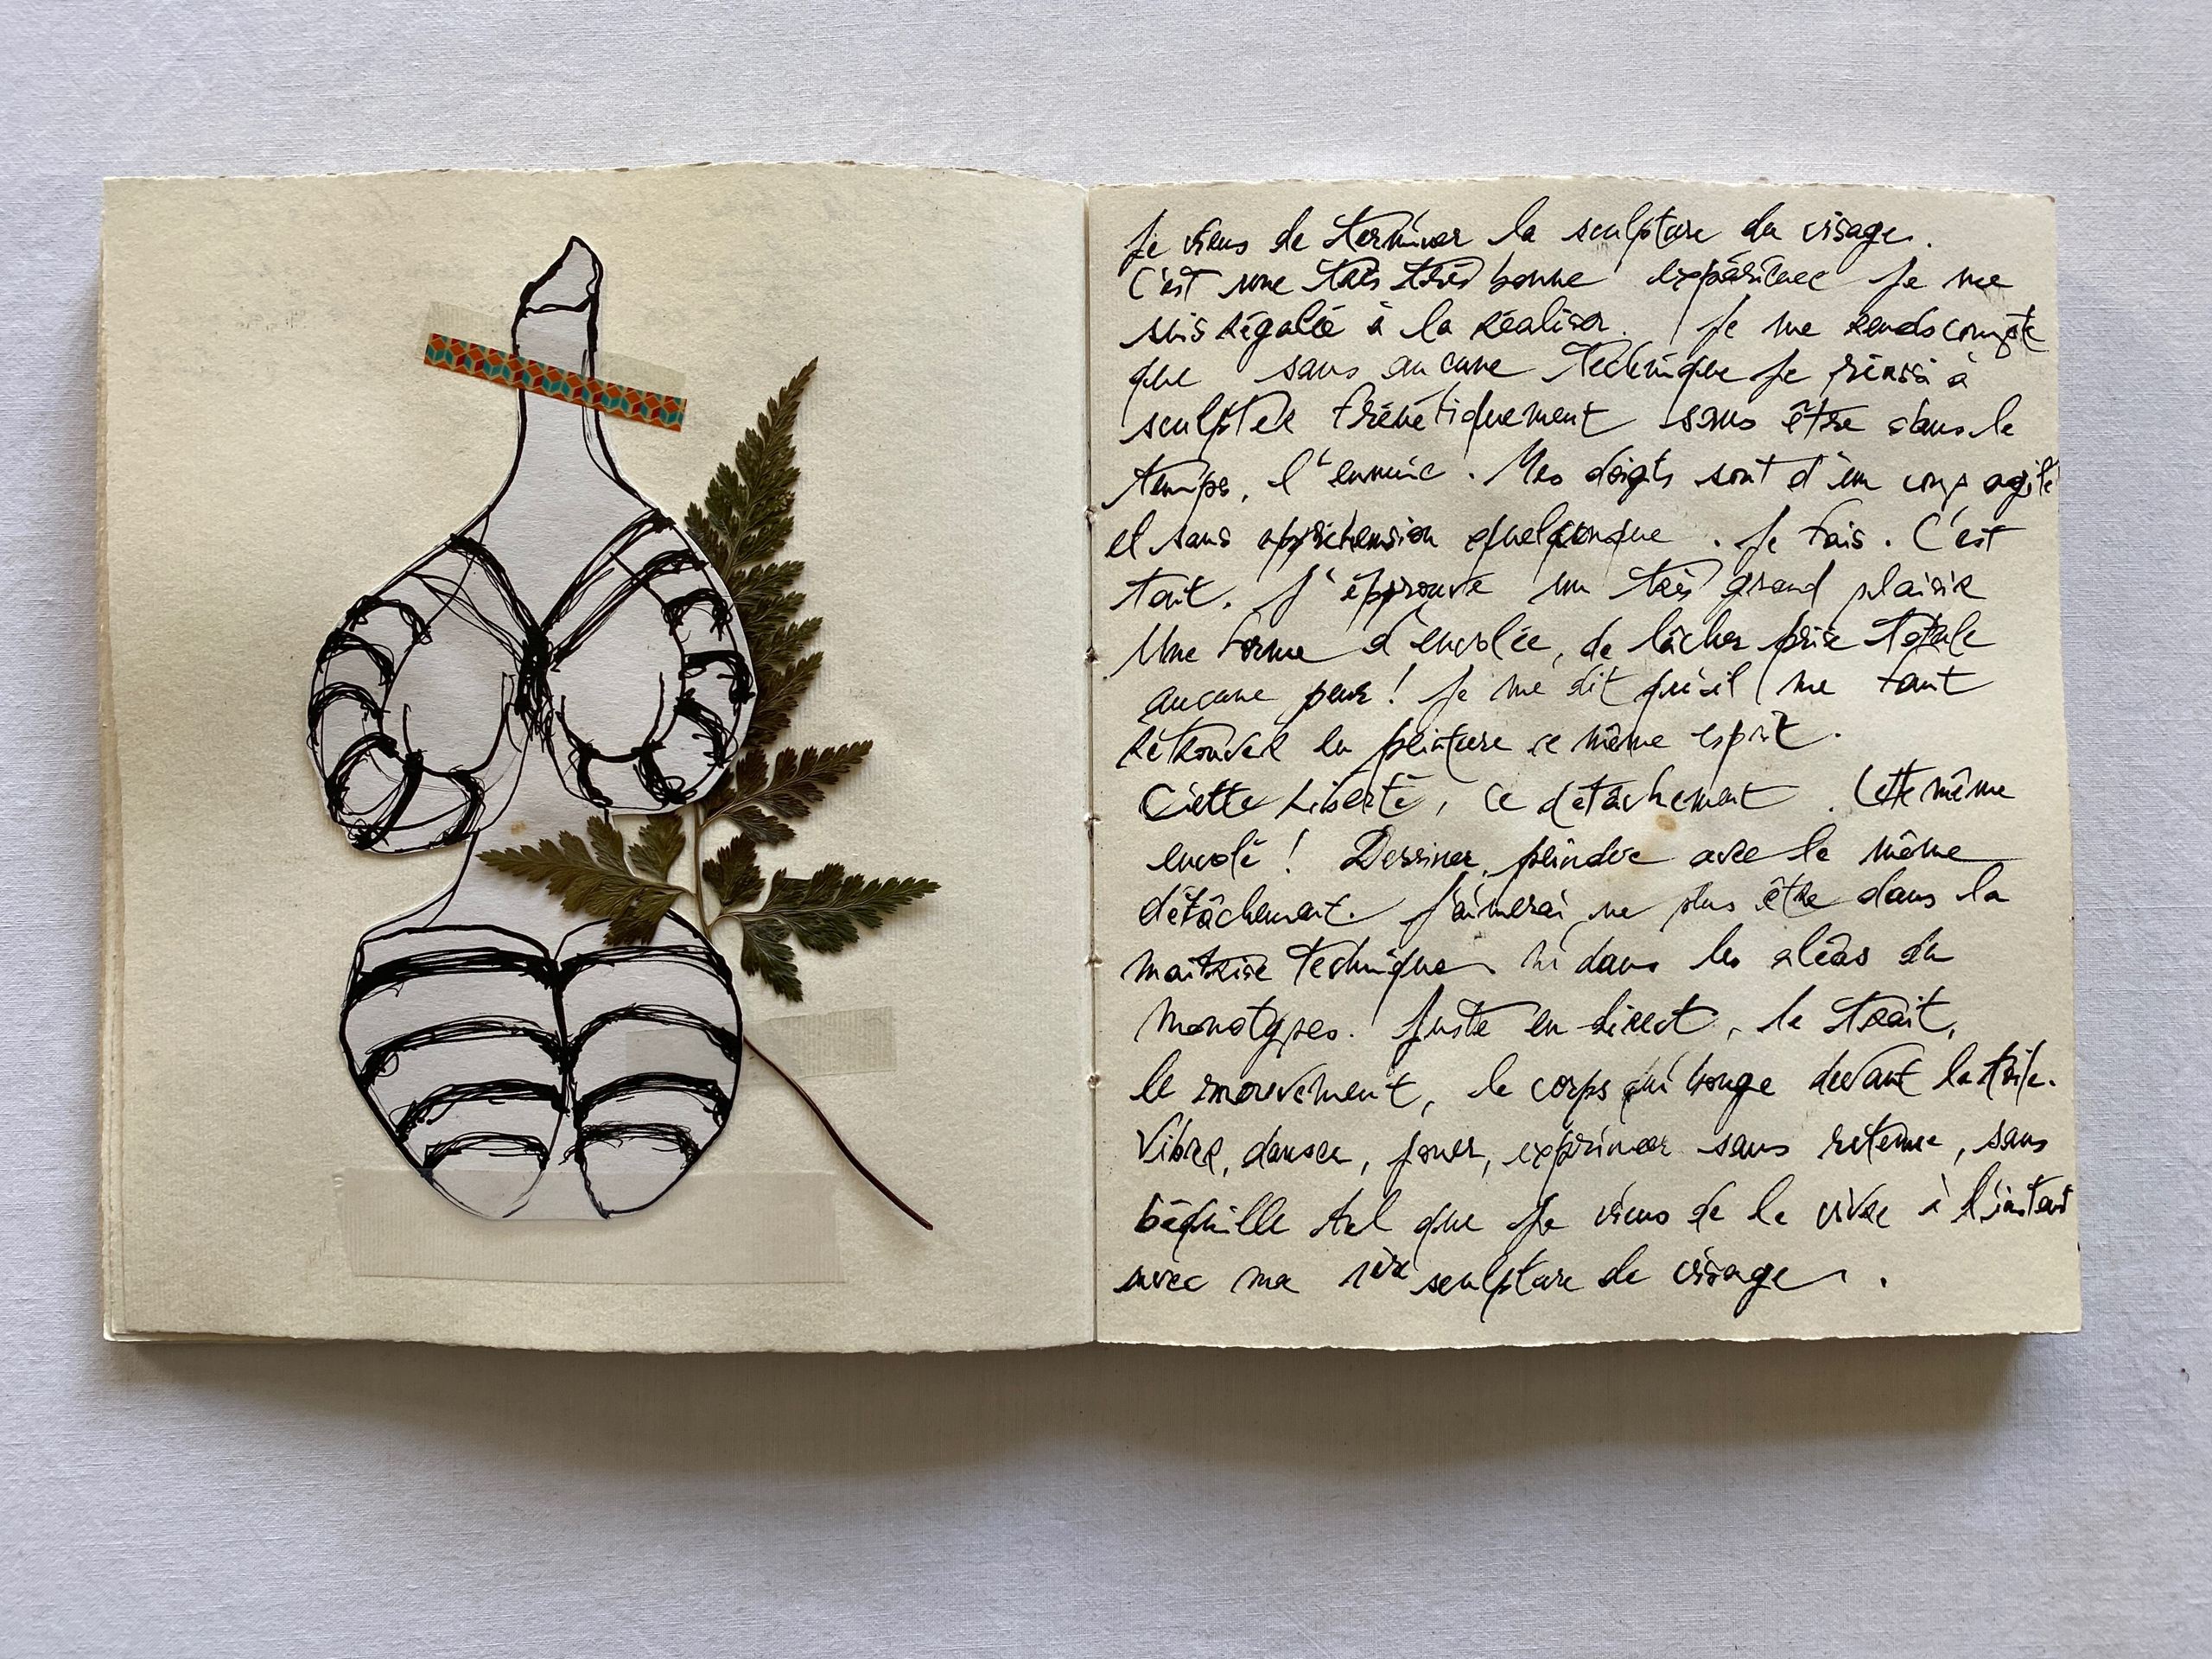 Je viens de terminer la sculpture du visage.
C'est une très très bonne expérience Je me
suis régalée à la réaliser. Je me rends compte
que sans aucune technique je réussi à
sculpter frénétiquement sans être dans le
temps, l'ennuie. Mes doigts sont d'un coup agité
et sans appréhension quelconque. Je fais. C'est
tout. J'éprouve un très grand plaisir
Une forme d'envolée, de lâcher prise totale
aucune peur! Je me dit qu'il me faut
retrouver en peinture ce même esprit.
Cette Liberté, ce détachement. Cette même
envolé! Dessiner, peindre avec le même
détâchement. J'aimerai ne plus être dans la
maitrise technique ni dans les aléas du
monotypes. Juste en direct, le trait,
le mouvement, le corps qui bouge devant la toile.
Vibrer, danser, jouer, exprimer sans retenue, sans
béquille tel que je viens de le vivre à l'instant
avec ma 1ère sculpture de visage.